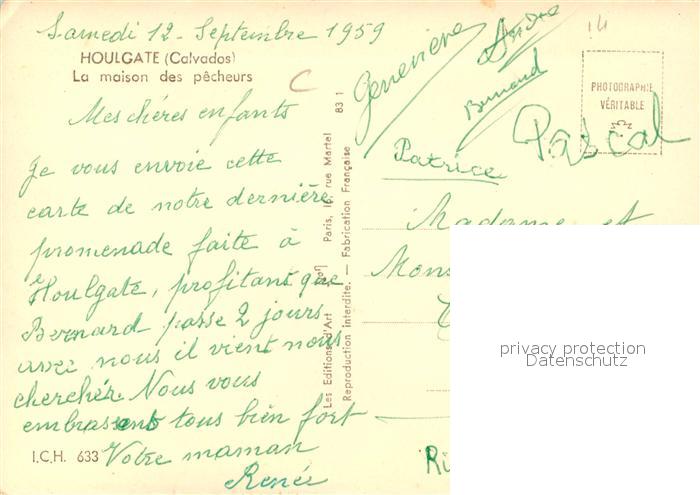 Samedi 12 - Septembre 1959
HOULGATE (Calvados)
La maison des pêcheurs
Mes chéres enfants
Je vous envoie cette
carte de notre dernière
promenade faite à
Houlgate, profitant que
Bernard passe 2 jours
avec nous il vient nous
cherchér. Nous vous
embrassent tous bien fort
I.C.H. 633
Votre maman
Renée
Les Editions d'Art
Paris, 16, rue Martel
83 1
Reproduction interdite. — Fabrication Française
Geneviève
André
Bernard
Pascal
Patrice
PHOTOGRAPHIE
VÉRITABLE
Madame et
privacy protection
Datenschutz